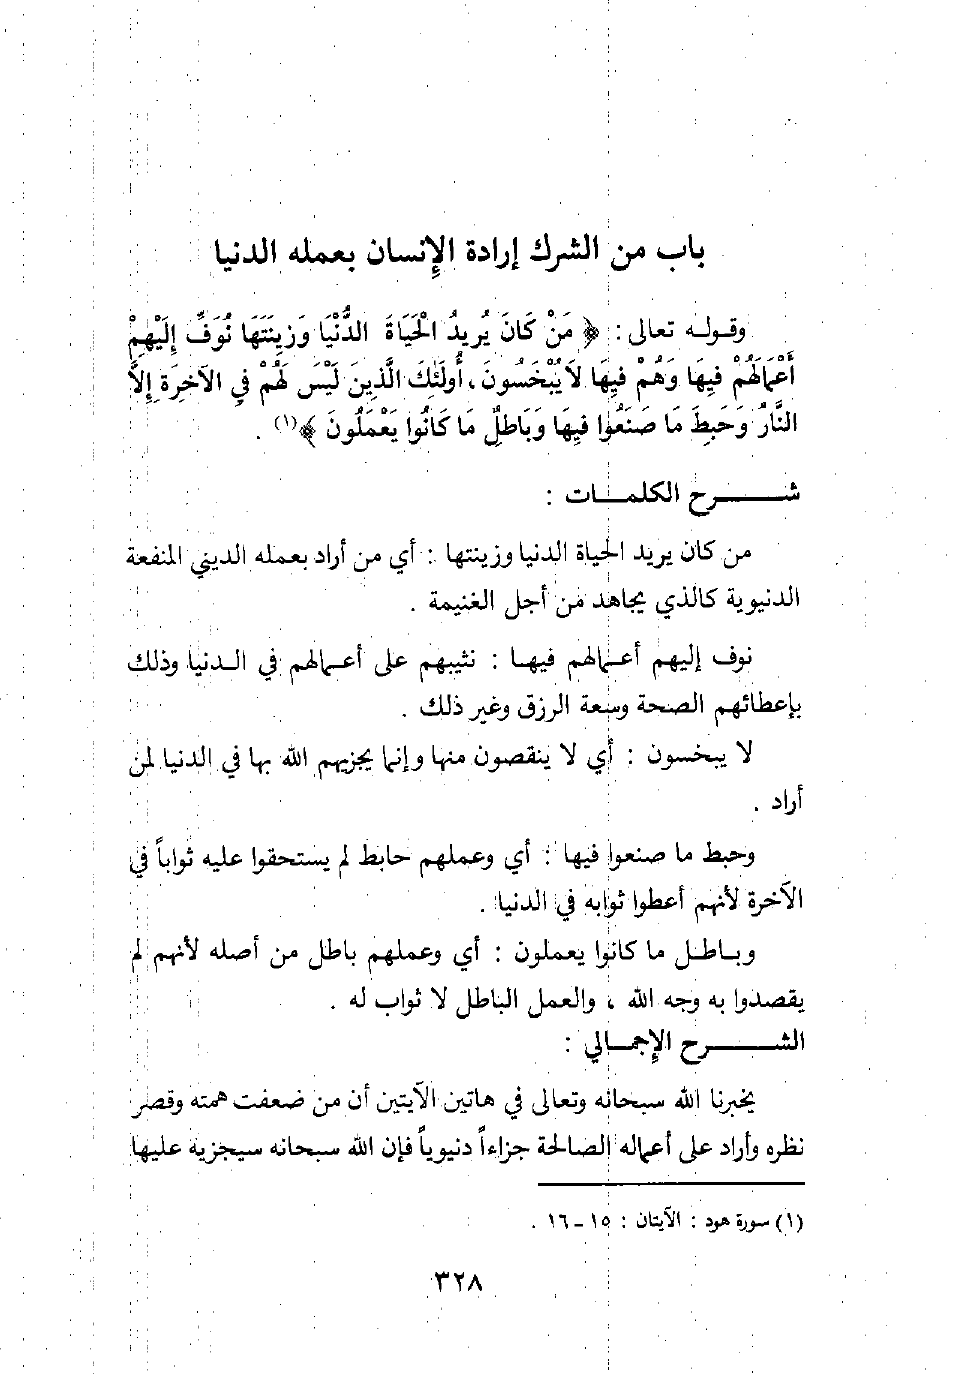 باب من الشرك إرادة الإنسان بعمله الدنيا
وقوله تعالى : ﴿ مَنْ كَانَ يُرِيدُ الْحَيَاةَ الدُّنْيَا وَزِينَتَهَا نُوَفِّ إِلَيْهِمْ
أَعْمَالَهُمْ فِيهَا وَهُمْ فِيهَا لَا يُبْخَسُونَ ، أُولَئِكَ الَّذِينَ لَيْسَ لَهُمْ فِي الآخِرَةِ إِلَّا
النَّارُ وَحَبِطَ مَا صَنَعُوا فِيهَا وَبَاطِلٌ مَا كَانُوا يَعْمَلُونَ ﴾(١) .
شرح الكلمات :
من كان يريد الحياة الدنيا وزينتها : أي من أراد بعمله الديني المنفعة
الدنيوية كالذي يجاهد من أجل الغنيمة .
نوف إليهم أعمالهم فيها : نثيبهم على أعمالهم في الدنيا وذلك
بإعطائهم الصحة وسعة الرزق وغير ذلك .
لا يبخسون : أي لا ينقصون منها وإنما يجزيهم الله بها في الدنيا لمن
أراد .
وحبط ما صنعوا فيها : أي وعملهم حابط لم يستحقوا عليه ثواباً في
الآخرة لأنهم أعطوا ثوابه في الدنيا .
وباطل ما كانوا يعملون : أي وعملهم باطل من أصله لأنهم لم
يقصدوا به وجه الله ، والعمل الباطل لا ثواب له .
الشرح الإجمالي :
يخبرنا الله سبحانه وتعالى في هاتين الآيتين أن من ضعفت همته وقصر
نظره وأراد على أعماله الصالحة جزاءاً دنيوياً فإن الله سبحانه سيجزيه عليها
(١) سورة هود : الآيتان : ١٥ - ١٦ .
٣٢٨